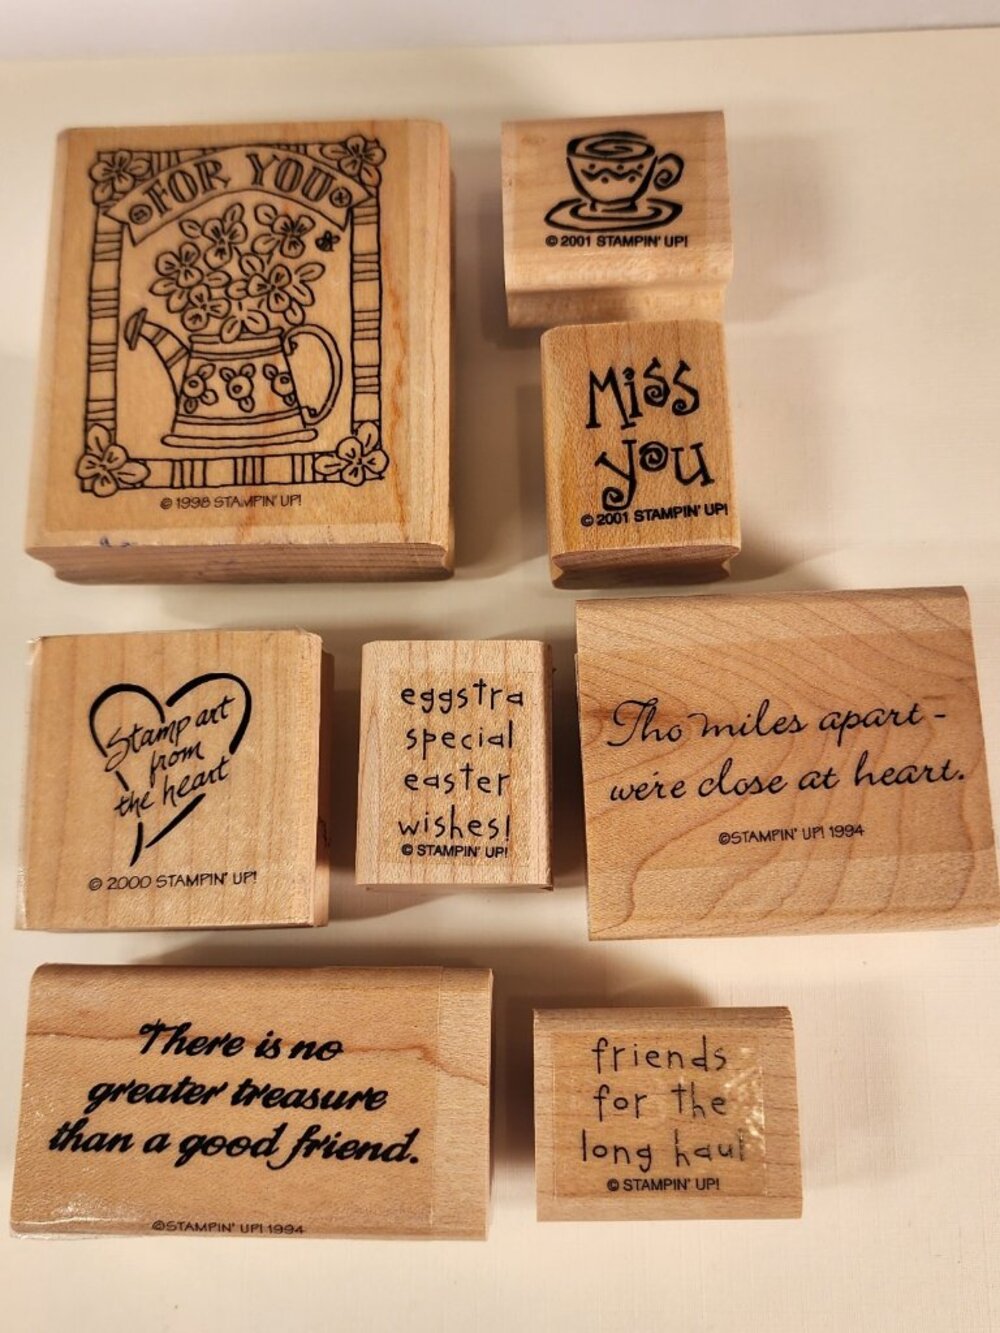 FOR YOU
© 1998 STAMPIN' UP!
© 2001 STAMPIN' UP!
Miss
you
© 2001 STAMPIN' UP!
Stamp art
from
the heart
© 2000 STAMPIN' UP!
eggstra
special
easter
wishes!
© STAMPIN' UP!
Tho miles apart -
we're close at heart.
©STAMPIN' UP! 1994
There is no
greater treasure
than a good friend.
©STAMPIN' UP! 1994
friends
for the
long haul
© STAMPIN' UP!